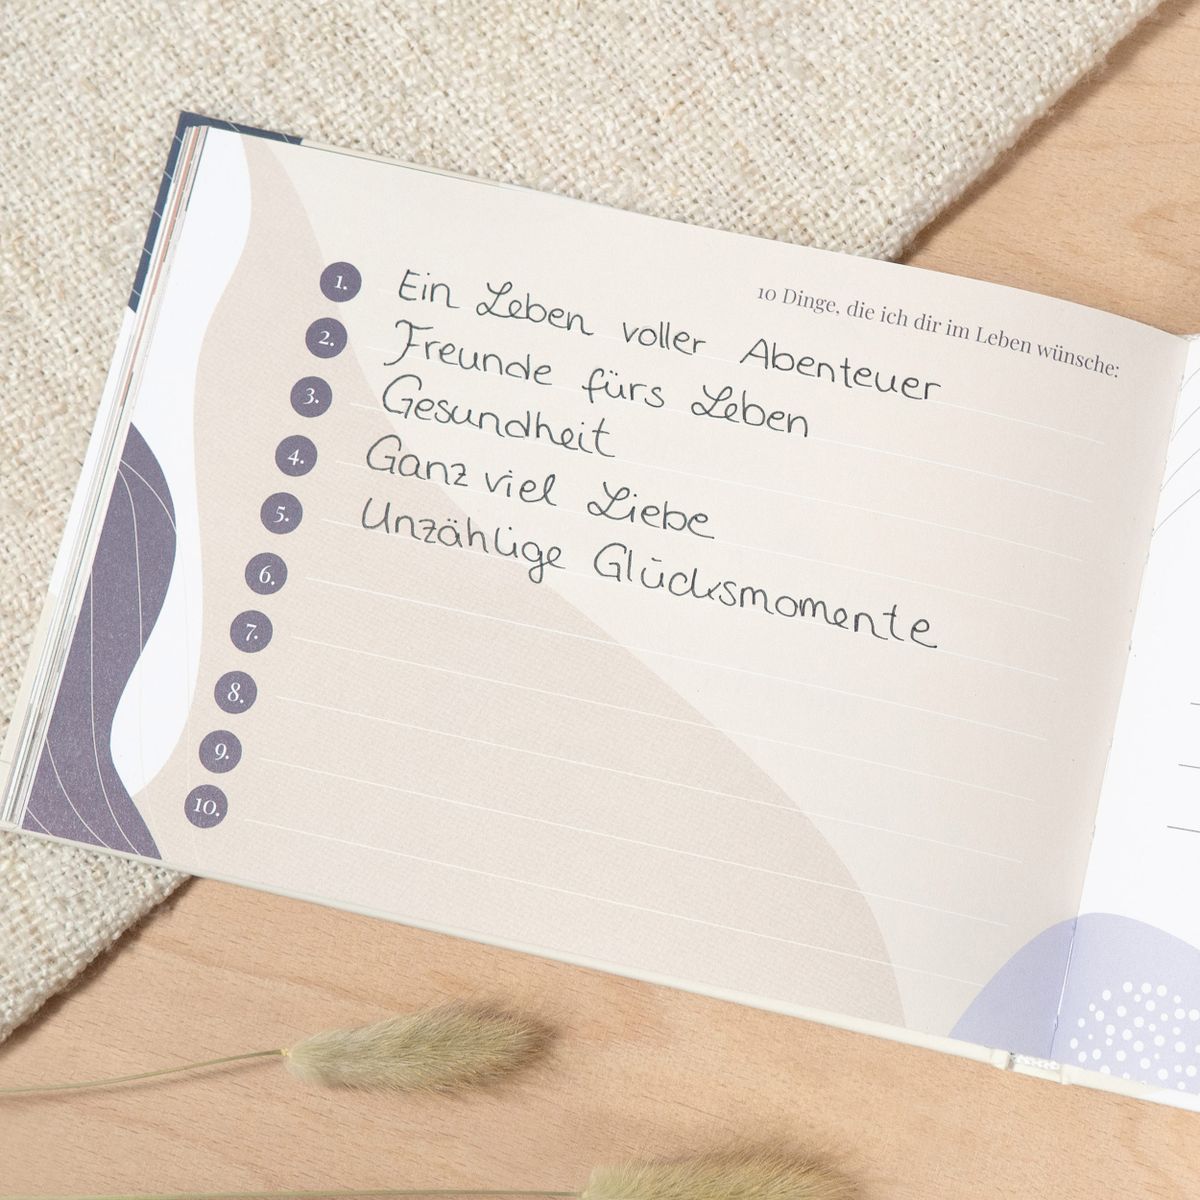 10 Dinge, die ich dir im Leben wünsche:
1. Ein Leben voller Abenteuer
2. Freunde fürs Leben
3. Gesundheit
4. Ganz viel Liebe
5. Unzählige Glücksmomente
6.
7.
8.
9.
10.